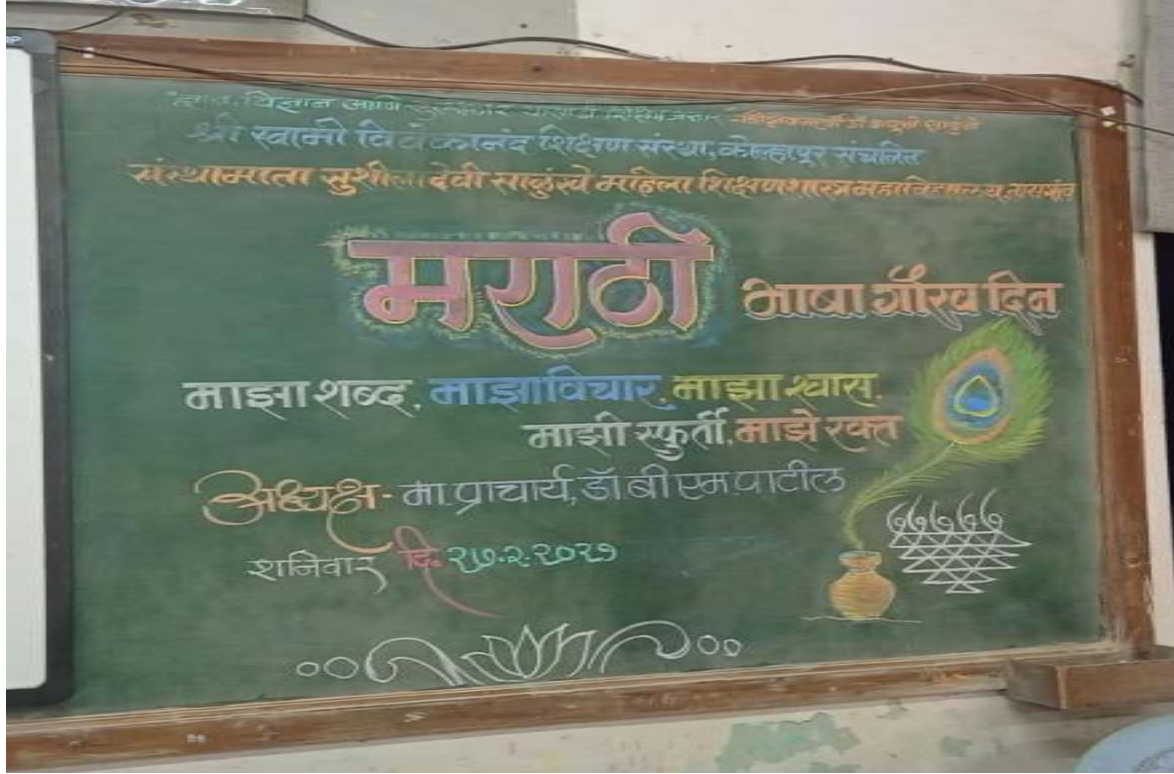 ज्ञान, विज्ञान आणि सुसंस्कार यासाठी शिक्षण प्रसार
श्री स्वामी विवेकानंद शिक्षण संस्था, कोल्हापूर संचलित
संस्थामाता सुशीलादेवी साळुंखे महिला शिक्षणशास्त्र महाविद्यालय, तासगांव
मराठी भाषा गौरव दिन
माझा शब्द, माझा विचार, माझा श्वास,
माझी स्फुर्ती, माझे रक्त
अध्यक्ष - मा. प्राचार्य, डॉ बी एम. पाटील
शनिवार दि. २७.२.२०२१